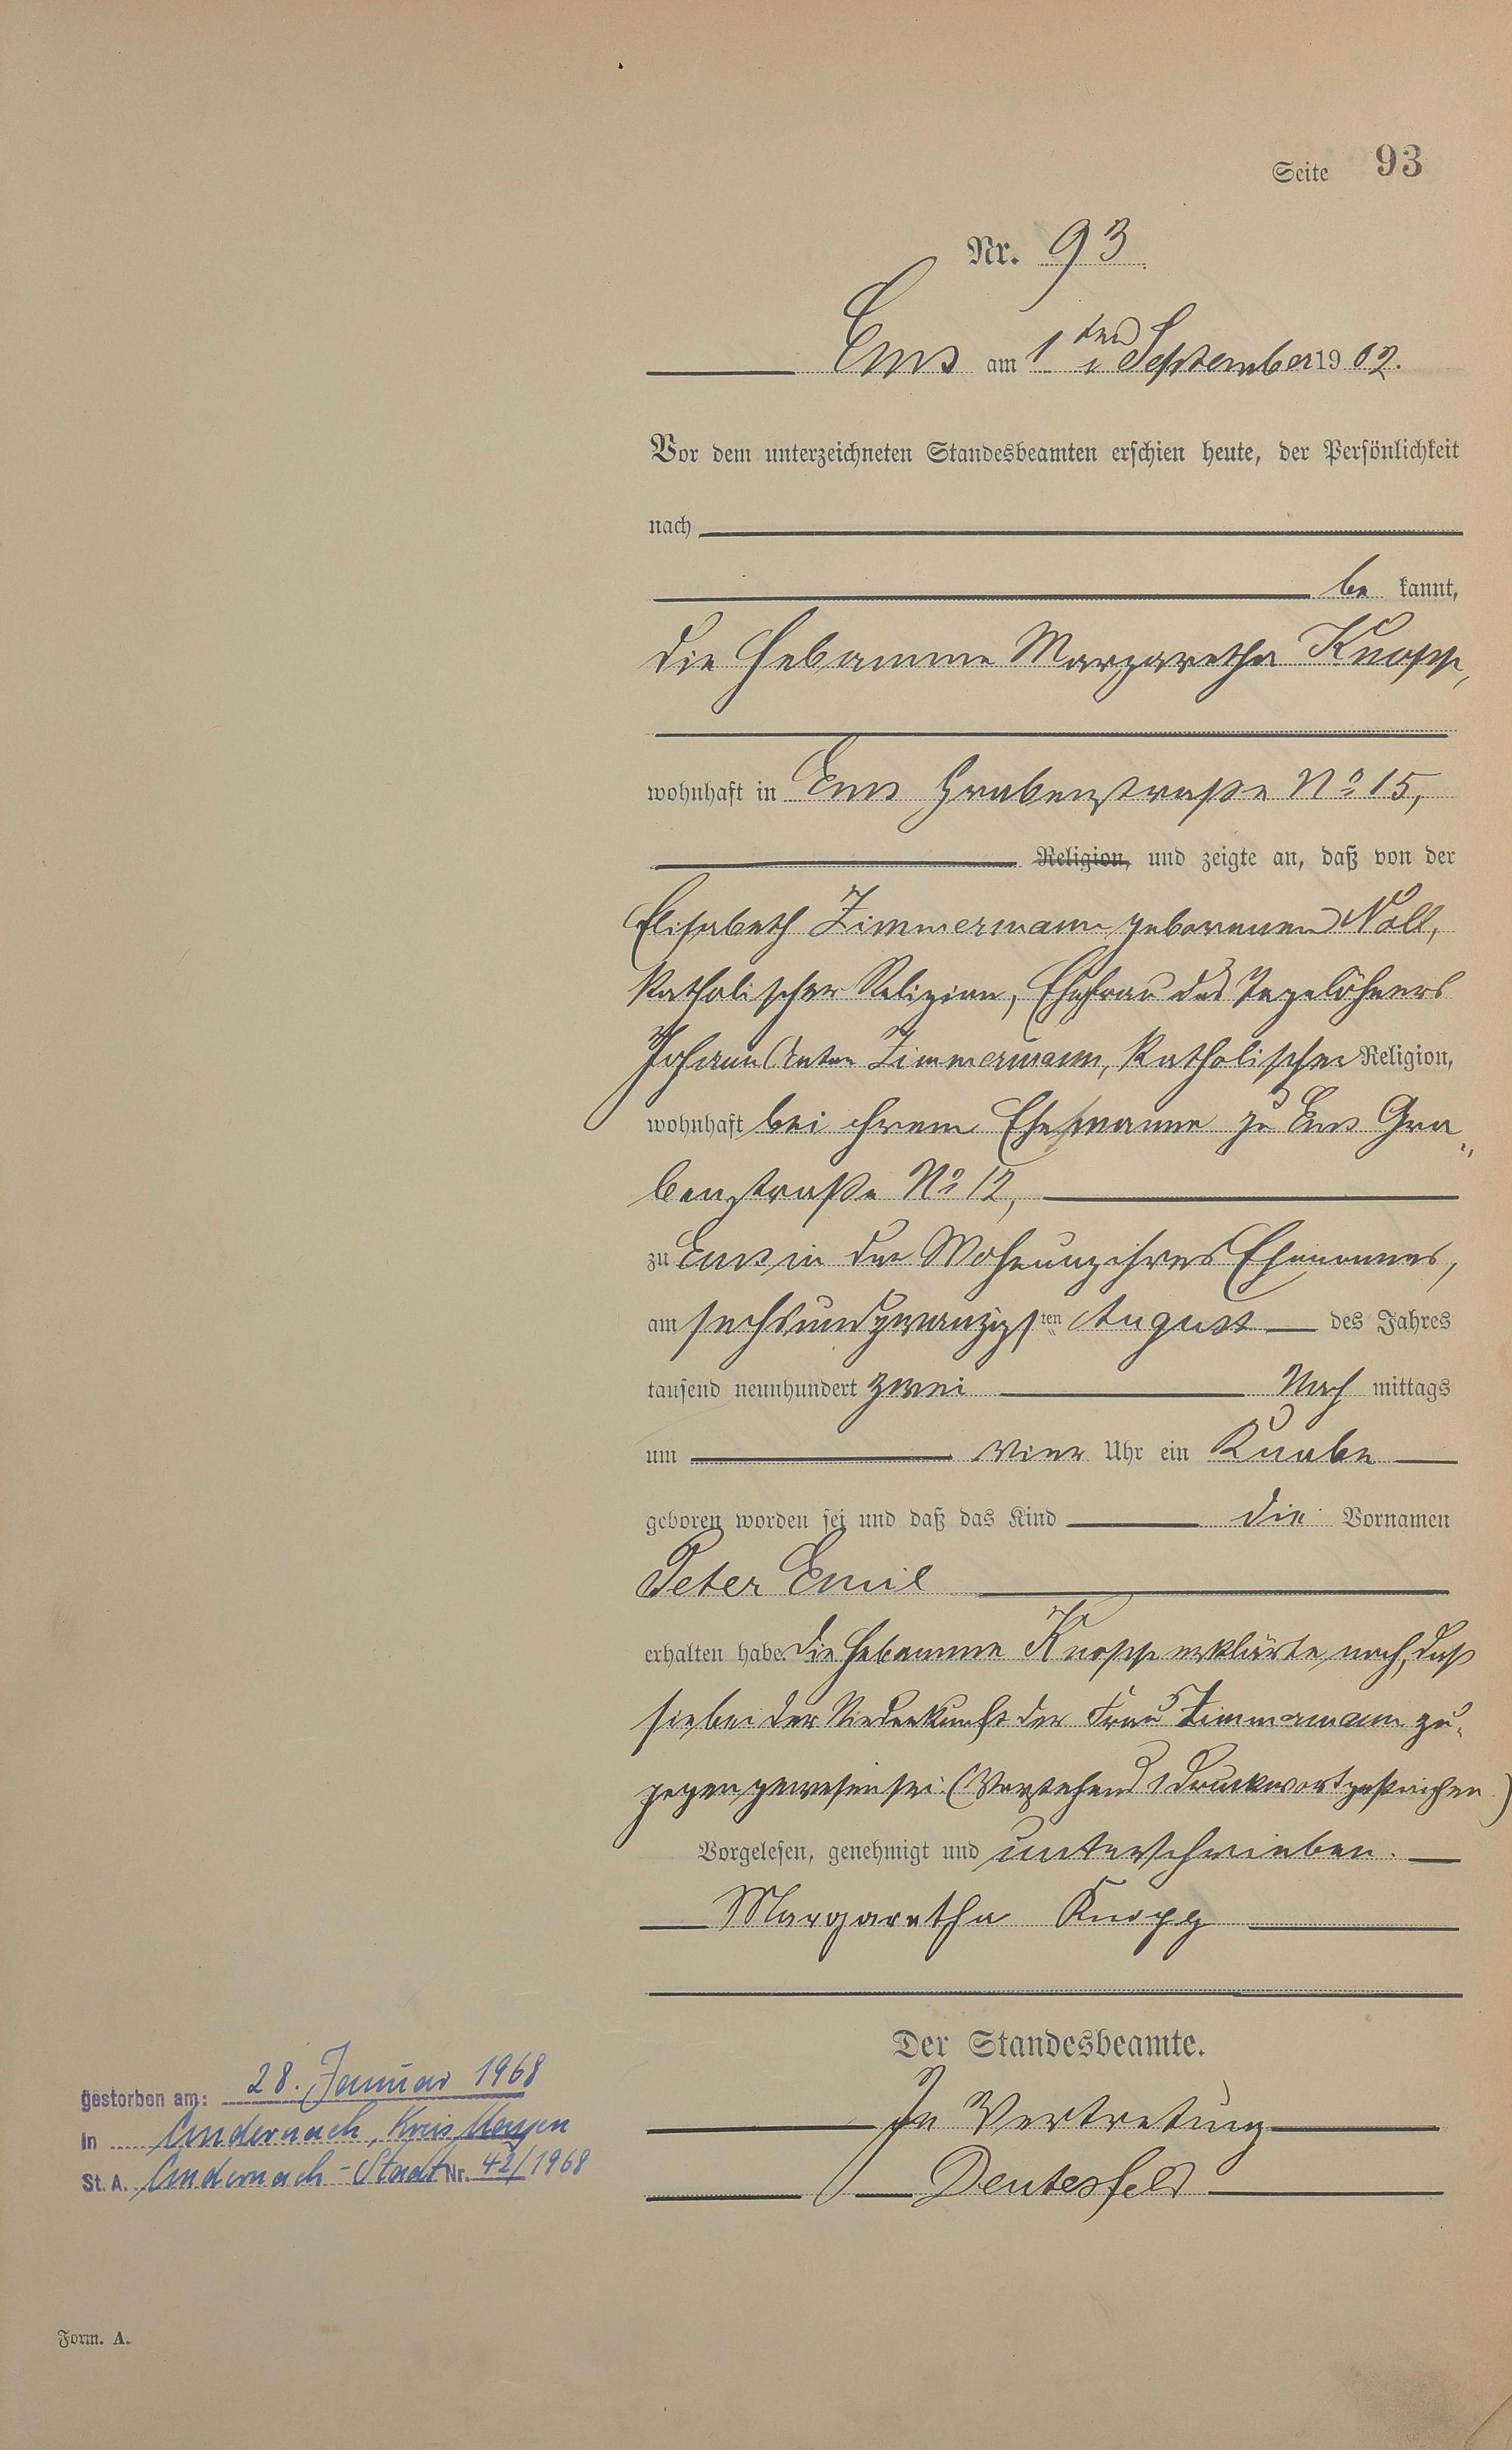 Seite 93
Nr. 93
Ems am 1ten September 1902.
Vor dem unterzeichneten Standesbeamten erschien heute, der Persönlichkeit
nach
be kannt,
die Hebamme Margaretha Knopp,
wohnhaft in Ems Grabenstraße No 15,
Religion, und zeigte an, daß von der
Elisabeth Zimmermann geborenen Noll,
katholischer Religion, Ehefrau des Tagelöhners
Johann Anton Zimmermann, katholischer Religion,
wohnhaft bei ihrem Ehemanne zu Ems Gra„
benstraße No 12,
zu Ems in der Wohnung ihres Ehemannes,
am sechsundzwanzigsten August des Jahres
tausend neunhundert zwei Nach mittags
um vier Uhr ein Knabe
geboren worden sei und daß das Kind die Vornamen
Peter Emil
erhalten habe. Die Hebamme Knopp erklärte noch, daß
sie bei der Niederkunft der Frau Zimmermann zu„
gegen gewesen sei. (Vorstehend 1 Druckwort gestrichen.)
Vorgelesen, genehmigt und unterschrieben.
Margaretha Knopp
Der Standesbeamte.
In Vertretung
Deutesfeld
gestorben am: 28. Januar 1968
in Andernach, Kreis Mayen
St. A. Andernach-Stadt Nr. 42/1968
Form. A.